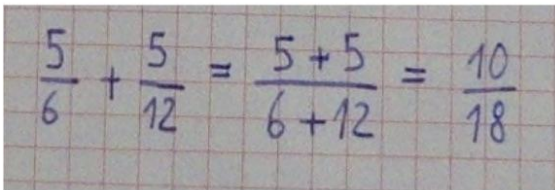 5/6 + 5/12 = (5 + 5)/(6 + 12) = 10/18